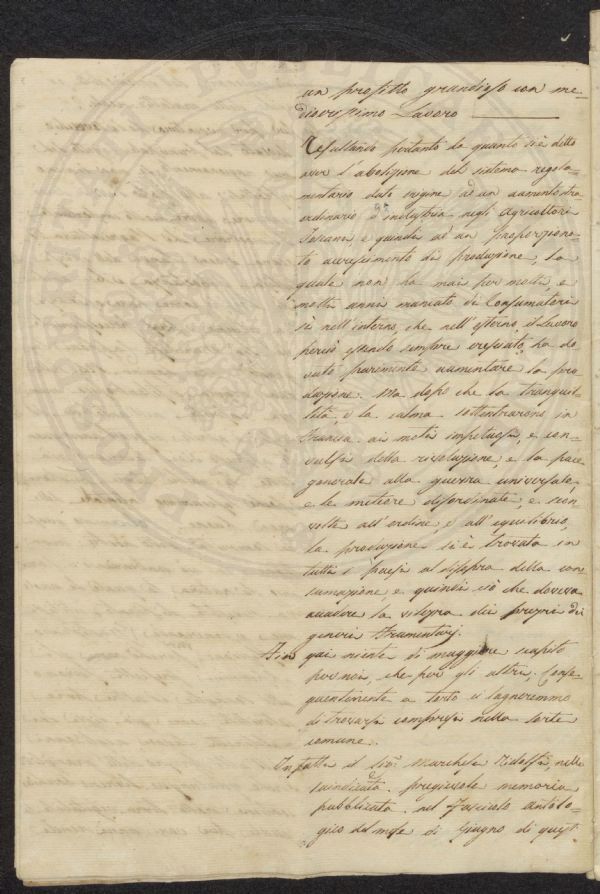 un profitto grandioso con me-
diocrissimo Lavoro
Resultando pertanto da quanto si è detto
aver l'abolizione del sistema regola-
mentario dato origine ad un aumento stra
ordinario d'industria negli Agricoltori
Toscani, e quindi ad un proporziona-
to accrescimento di produzione, la
quale non ha mai per molti, e
molti anni mancato di Consumatori
sì nell'interno, che nell'esterno, il Lavoro
perciò essendo sempre cresciuto, ha do-
vuto parimente aumentare la pro
duzione. Ma dopo che la tranquil-
lità, e la calma sottentrarono in
Francia ai moti impetuosi, e con-
vulsi della rivoluzione, e la pace
generale alla guerra universale,
e le materie disordinate, e scon-
volte all'ordine, e all'equilibrio,
la produzione si è trovata in
tutti i paesi al disopra della con
sumazione, e quindi ciò che doveva
accadere la viltezza dei prezzi dei
generi Frumentarj.
Fin qui niente di maggiore scapito
per noi, che per gli altri. Conse-
guentemente a torto ci lagneremmo
di trovarsi compresi nella sorte
comune.
Infatti il Sig. Marchese Ridolfi nella
suindicata pregievole memoria
pubblicata nel Fascicolo antolo-
gico del mese di Giugno di quest